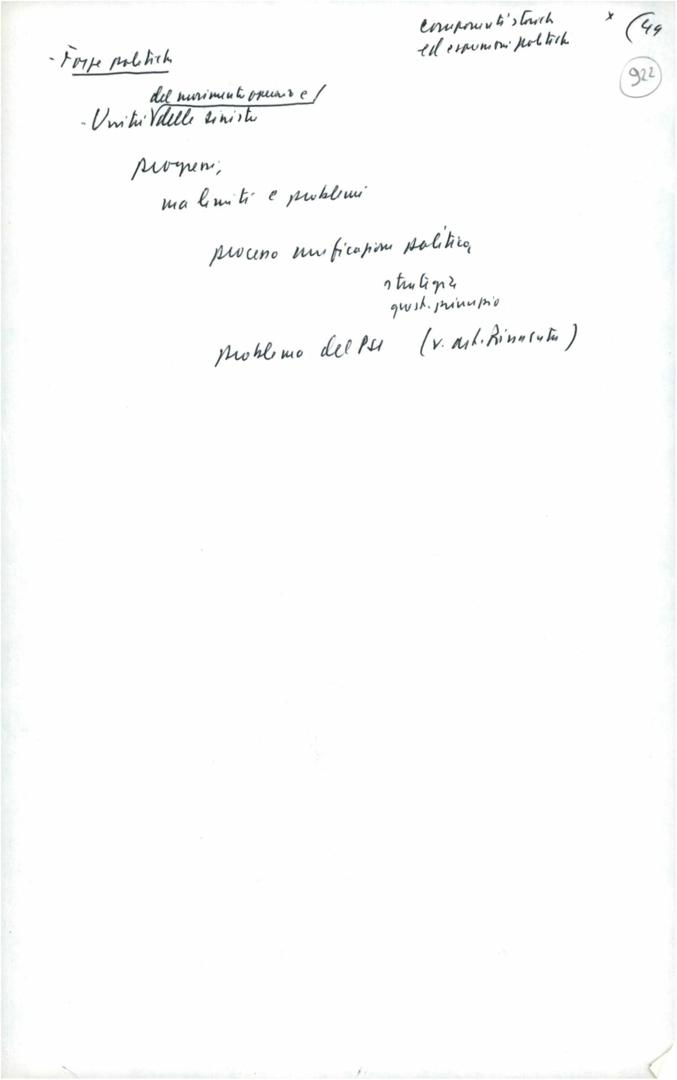 componenti storiche
ed espressioni politiche
x (49
922
- Forze politiche
del movimento operaio e/
- Unità delle sinistre
progressi,
ma limiti e problemi
processo unificazione politica
strategia
quest. principio
problema del PSI (v. art. Rinascita)